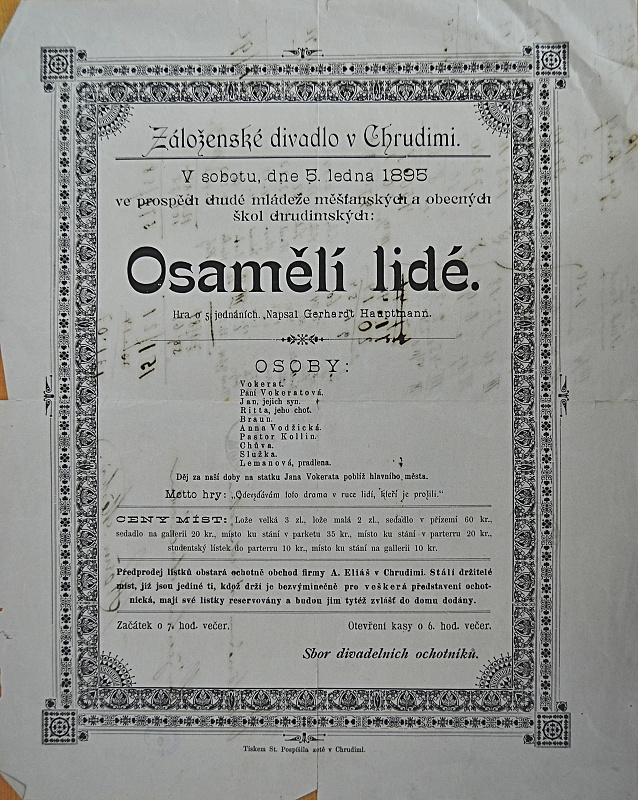 Záloženské divadlo v Chrudimi.
V sobotu, dne 5. ledna 1895
ve prospěch chudé mládeže měšťanských a obecných
škol chrudimských:
Osamělí lidé.
Hra o 5 jednáních. Napsal Gerhardt Hauptmann.
OSOBY:
Vokerat.
Paní Vokeratová.
Jan, jejich syn.
Ritta, jeho choť.
Braun.
Anna Vodžická.
Pastor Kollin.
Chůva.
Služka.
Lemanová, pradlena.
Děj za naší doby na statku Jana Vokerata poblíž hlavního města.
Motto hry: „Odevzdávám toto drama v ruce lidí, kteří je prožili.“
CENY MÍST: Lože velká 3 zl., lože malá 2 zl., sedadlo v přízemí 60 kr.,
sedadlo na gallerii 20 kr., místo ku stání v parketu 35 kr., místo ku stání v parterru 20 kr.,
studentský lístek do parterru 10 kr., místo ku stání na gallerii 10 kr.
Předprodej lístků obstará ochotně obchod firmy A. Eliáš v Chrudimi. Stálí držitelé
míst, již jsou jediné ti, kdož drží je bezvýminečně pro veškerá představení ochot-
nická, mají své lístky reservovány a budou jim tytéž zvlášť do domu dodány.
Začátek o 7. hod. večer.
Otevření kasy o 6. hod. večer.
Sbor divadelních ochotníků.
Tiskem St. Pospíšila zetě v Chrudimi.